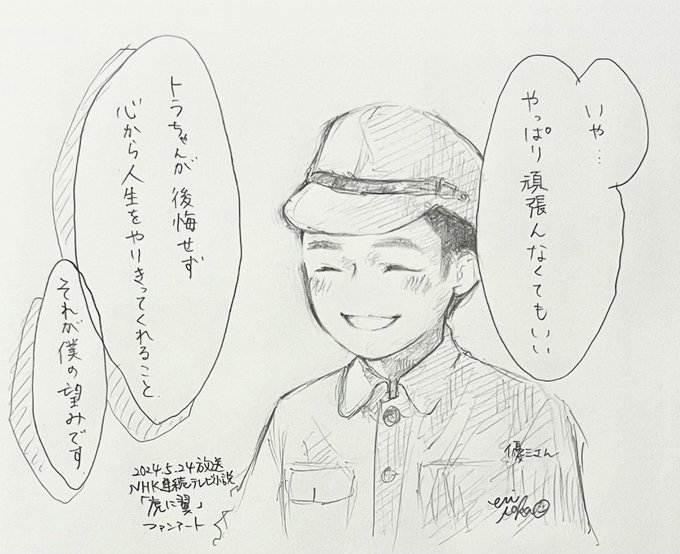 いや…
やっぱり頑張んなくてもいい
トラちゃんが後悔せず
心から人生をやりきってくれること
それが僕の望みです
優三さん
2024.5.24放送
NHK連続テレビ小説
「虎に翼」
ファンアート
eri